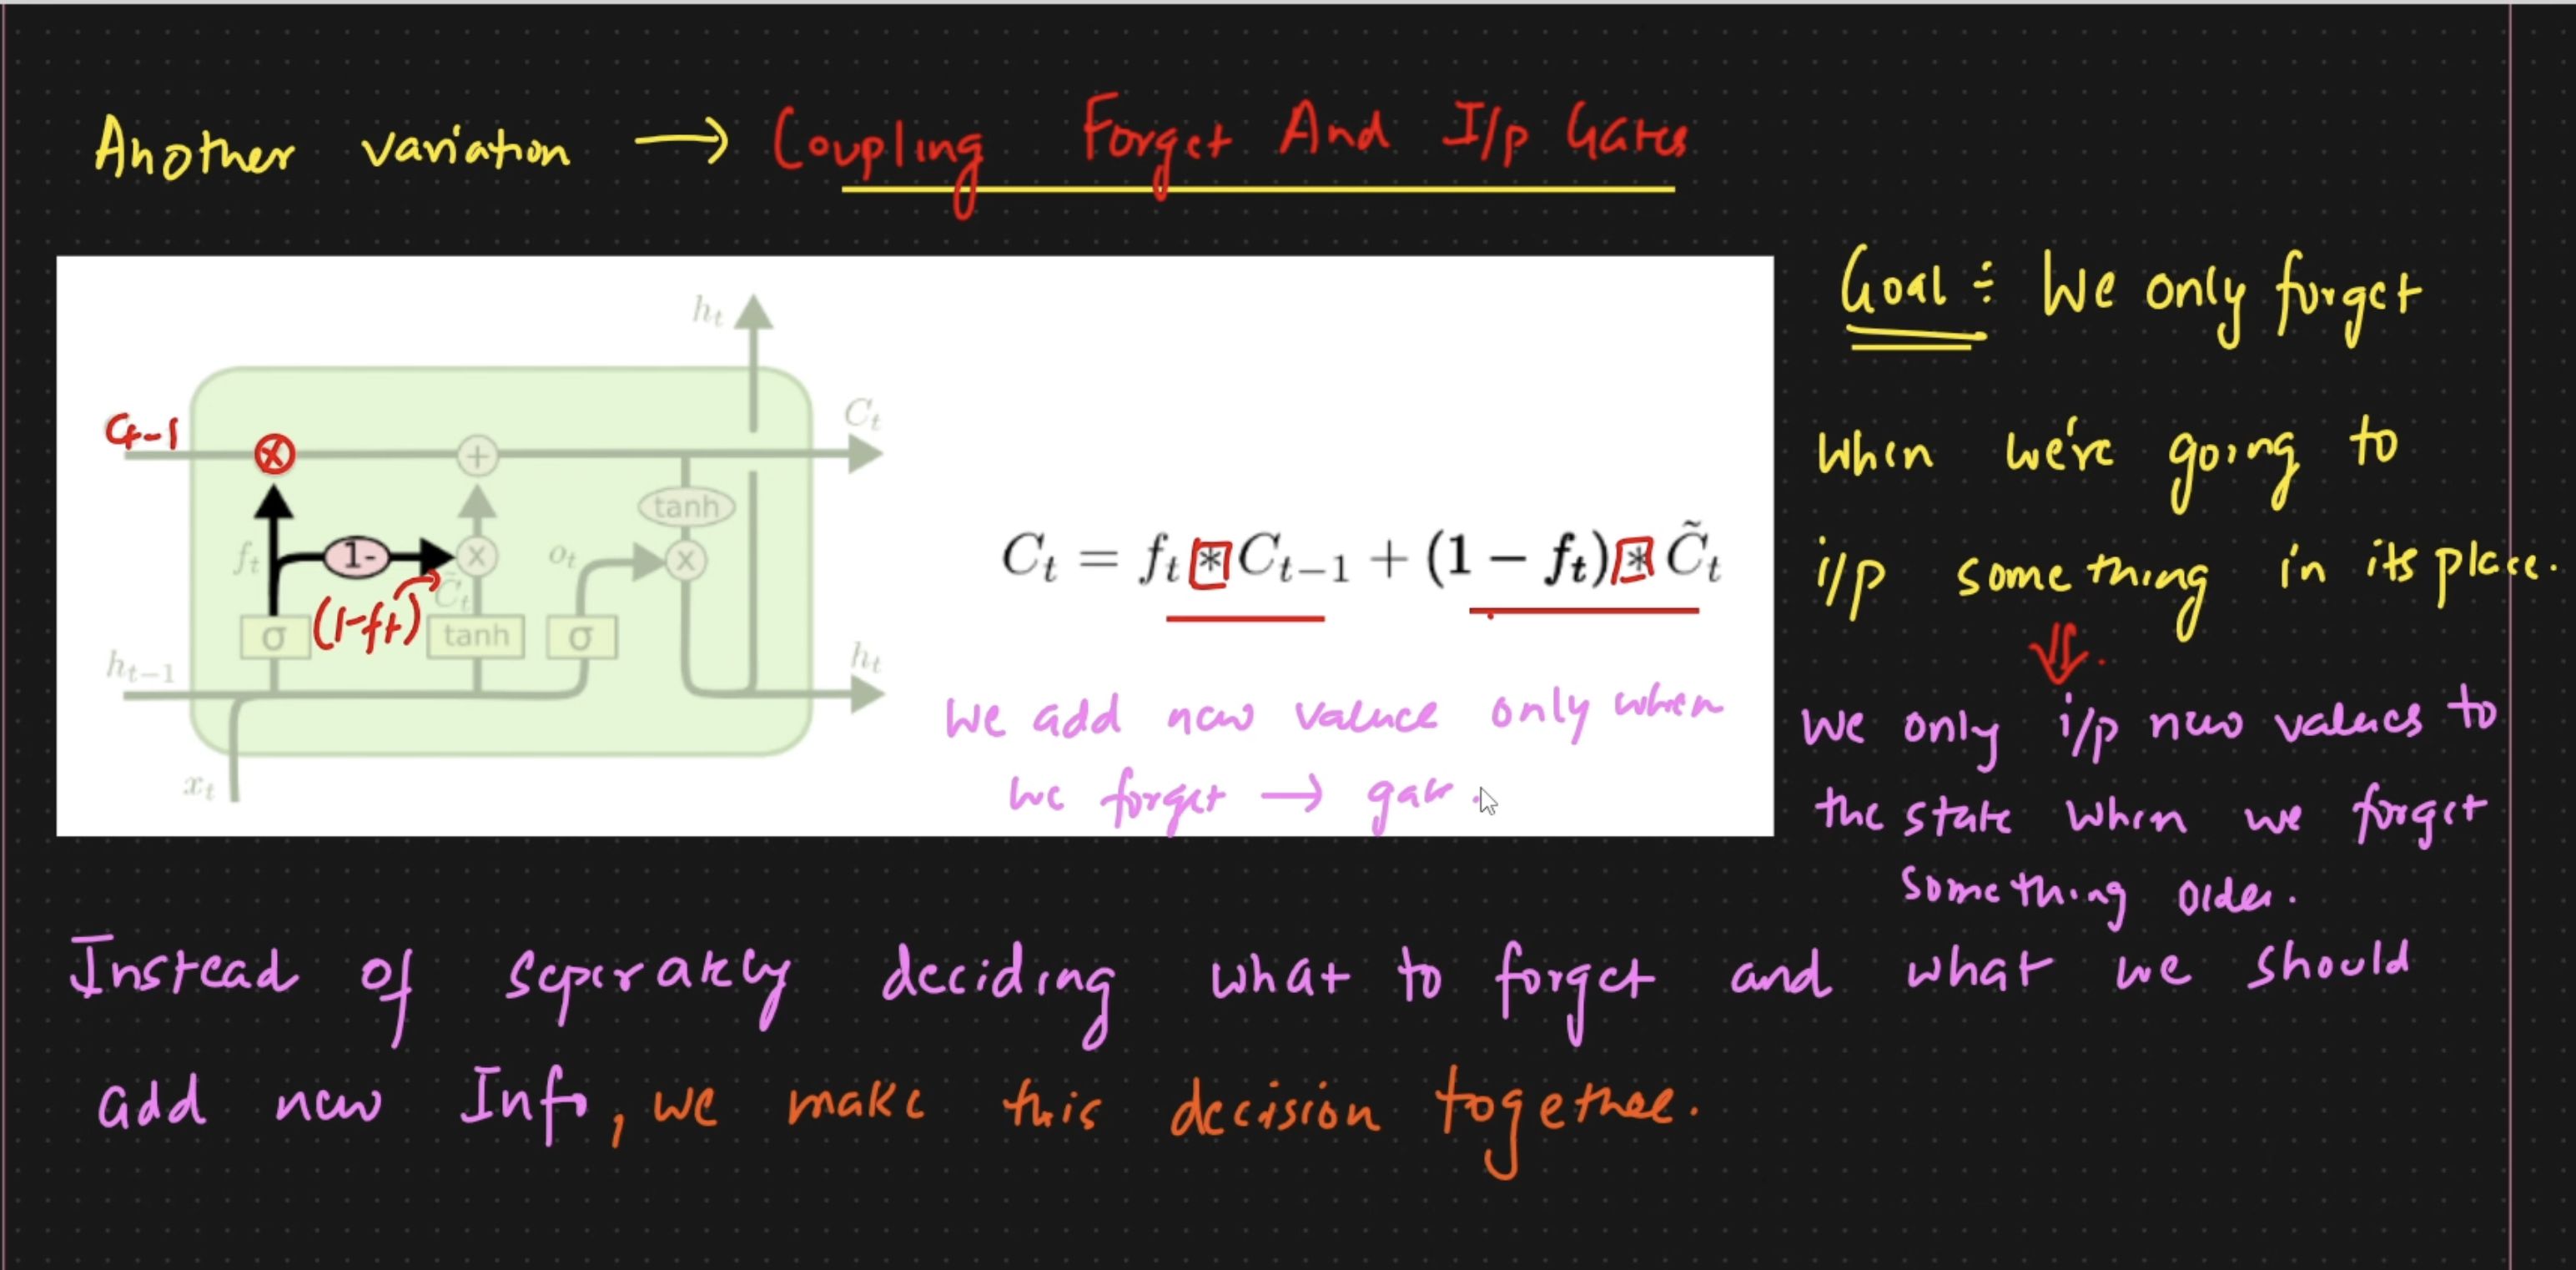 Another variation → Coupling Forget And I/p Gates
h_t
C_{t-1}
C_t
tanh
f_t
1-
o_t
C̃_t
(1-f_t)
σ
tanh
σ
h_{t-1}
h_t
x_t
C_t = f_t * C_{t-1} + (1 - f_t) * C̃_t
We add new values only when
we forget →
Goal : We only forget
when we're going to
i/p something in its place.
⇓
We only i/p new values to
the state when we forget
something older.
Instead of seperately deciding what to forget and what we should
add new Info, we make this decision together.